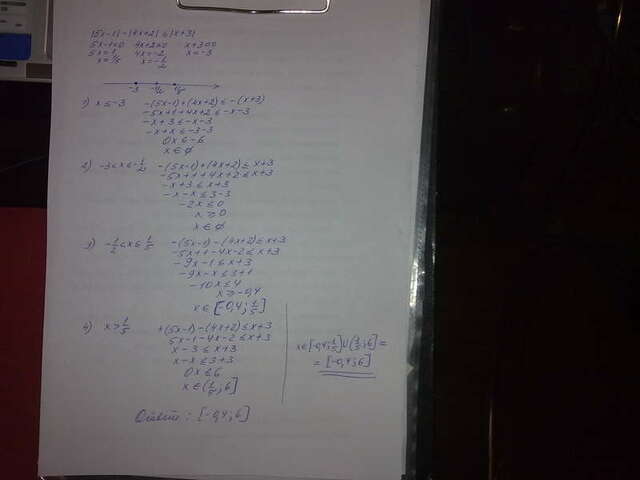 |5x-1|-|4x+2| ≤ |x+3|
5x-1=0 4x+2=0 x+3=0
5x=1 4x=-2 x=-3
x=1/5 x=-1/2
-3 -1/2 1/5
1) x≤-3 -(5x-1)+(4x+2)≤-(x+3)
-5x+1+4x+2≤-x-3
-x+3≤-x-3
-x+x≤-3-3
0x≤-6
x∈∅
2) -3<x≤-1/2 -(5x-1)+(4x+2)≤x+3
-5x+1+4x+2≤x+3
-x+3≤x+3
-x-x≤3-3
-2x≤0
x≥0
x∈∅
3) -1/2<x≤1/5 -(5x-1)-(4x+2)≤x+3
-5x+1-4x-2≤x+3
-9x-1≤x+3
-9x-x≤3+1
-10x≤4
x≥-0,4
x∈[-0,4;1/5]
4) x>1/5 +(5x-1)-(4x+2)≤x+3
5x-1-4x-2≤x+3
x-3≤x+3
x-x≤3+3
0x≤6
x∈(1/5;6]
x∈[-0,4;1/5]∪(1/5;6]=
=[-0,4;6]
Ответ: [-0,4;6]